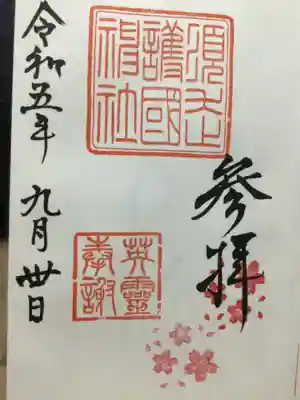 参拝
須走
護國
神社
英靈
奉謝
令和五年 九月卅日